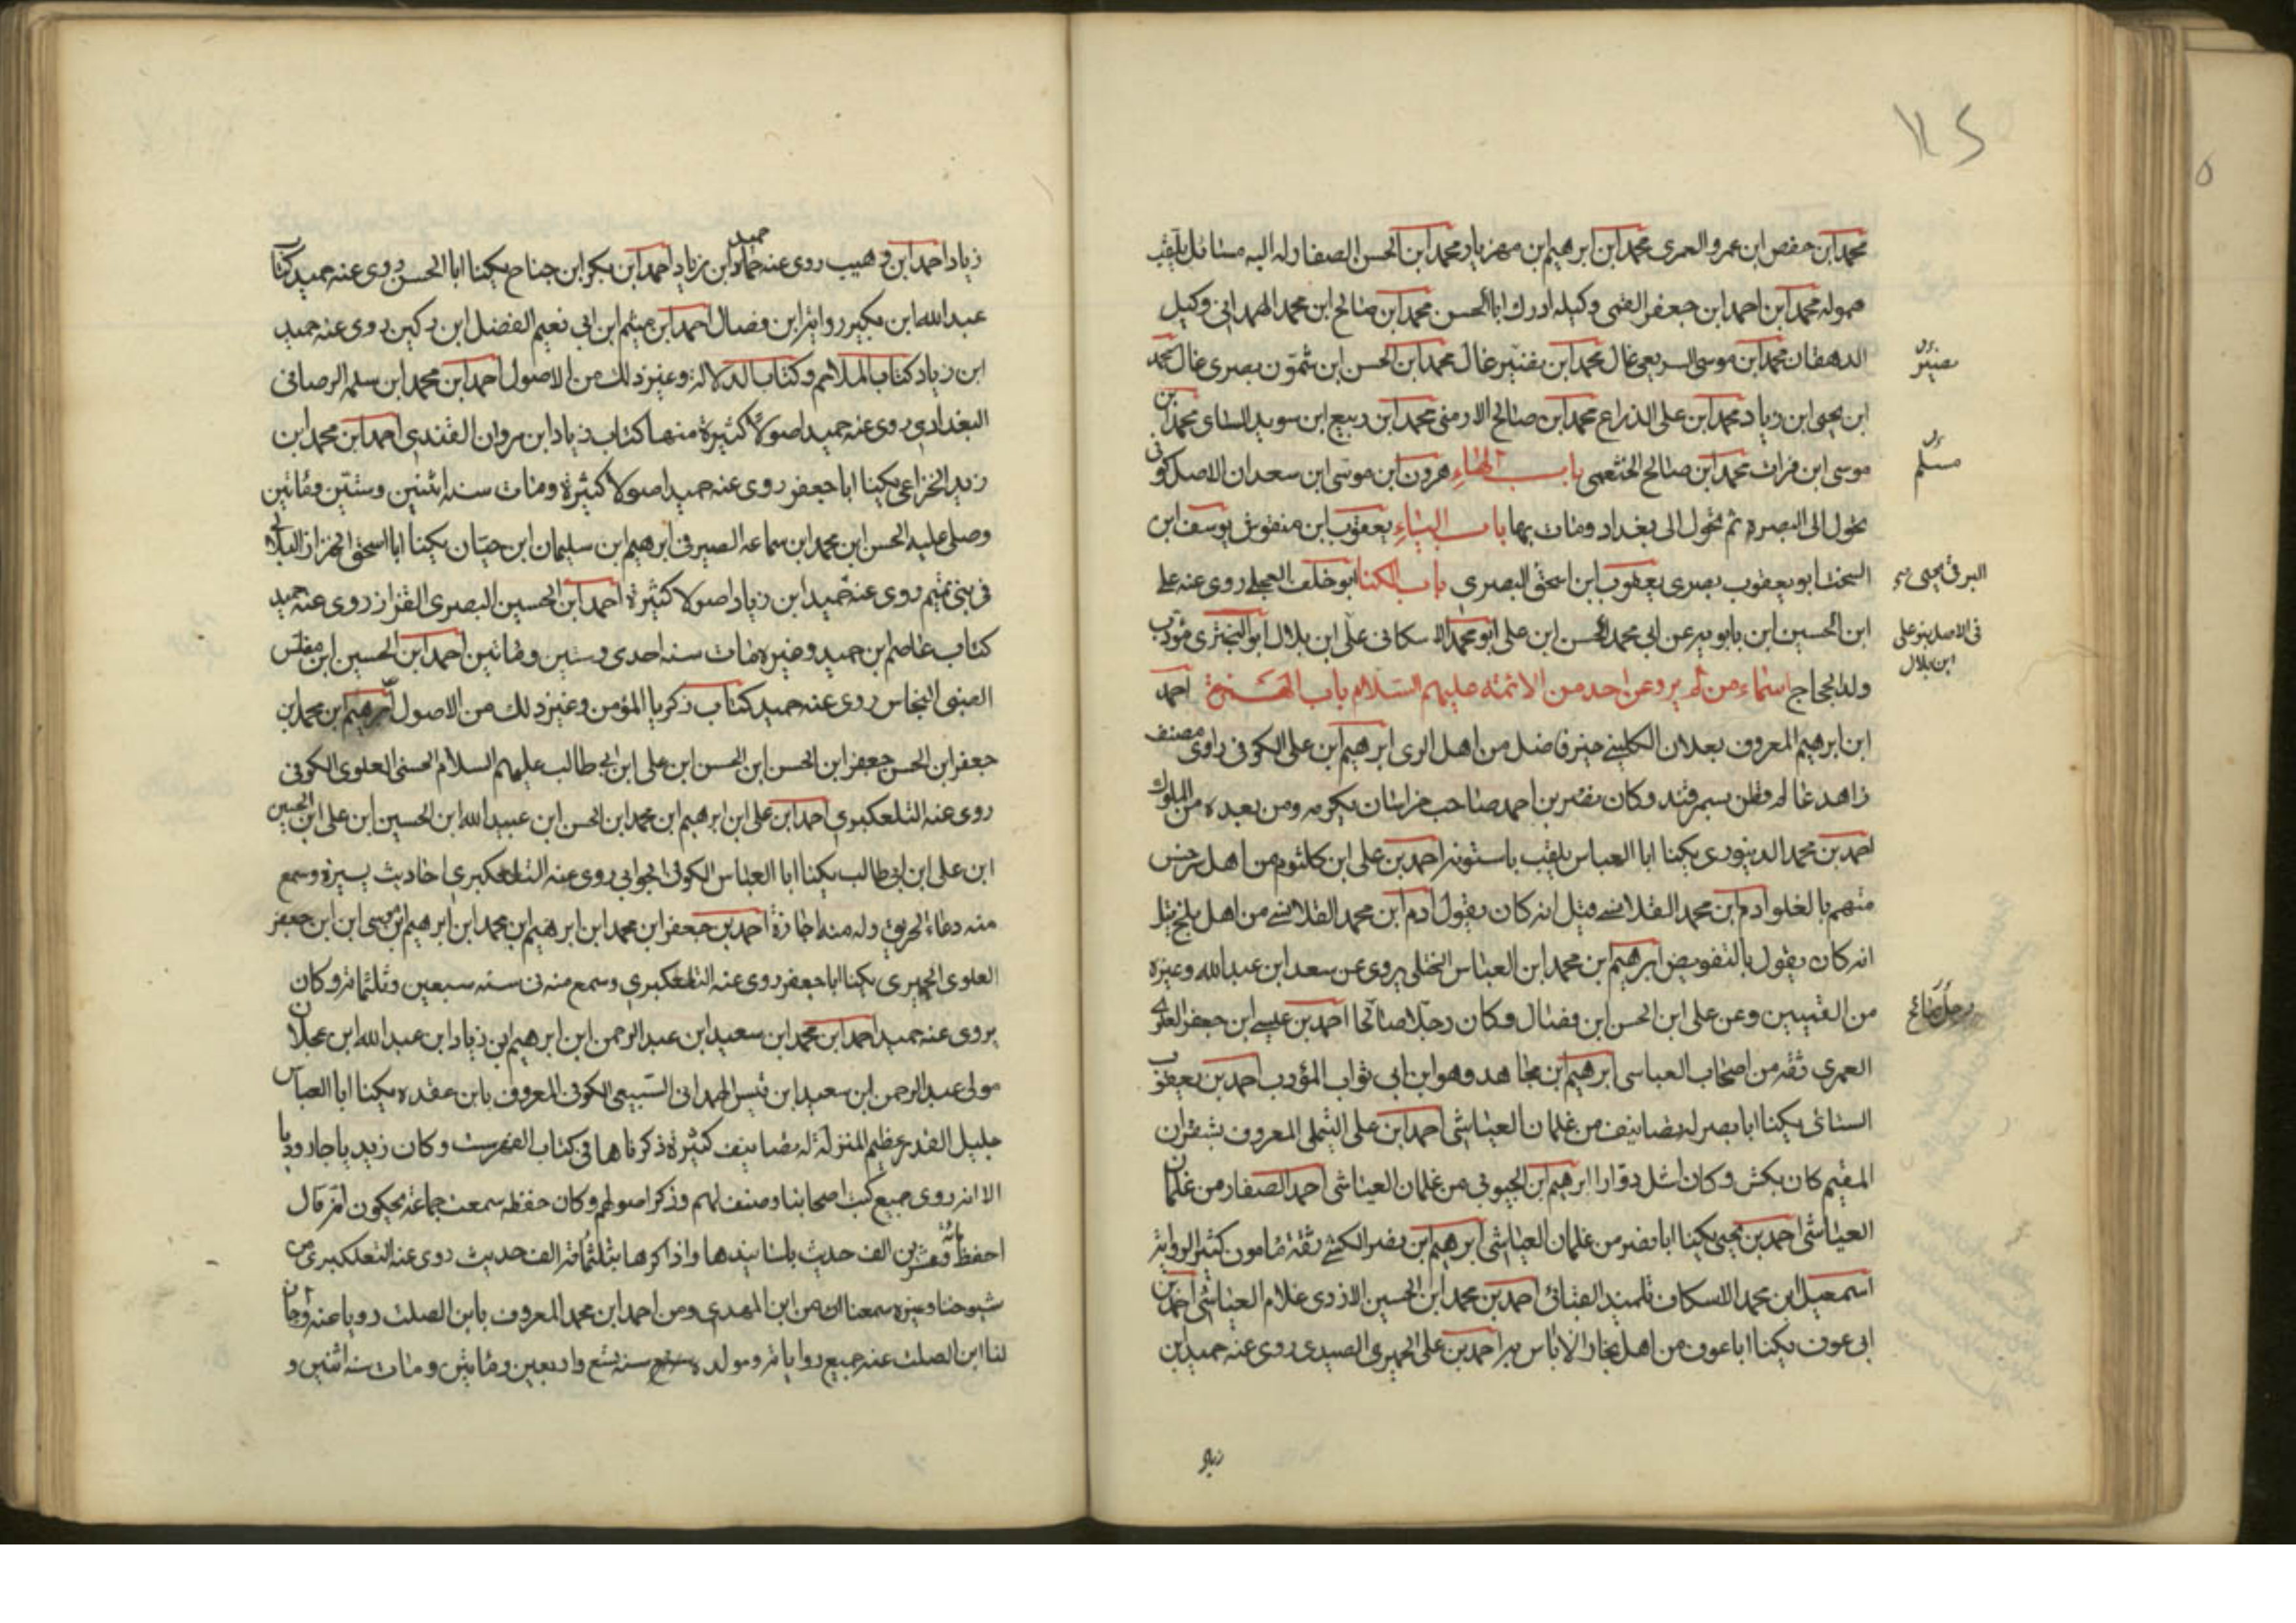 محمد ابن حفص ابن عمرو العمرى محمد ابن ابرهيم ابن مهزيار محمد ابن الحسن الصفار له اليه مسائل يلقب
ممولة محمد ابن احمد ابن جعفر القمى وكيله ادرك ابا الحسن محمد ابن صالح ابن محمد الهمدانى وكيل
الدهقان محمد ابن موسى السريعى غال محمد ابن نصير غال محمد ابن الحسن ابن شمون بصرى غال محمد
ابن يحيى ابن زياد محمد ابن على الذراع محمد ابن صالح الارمنى محمد ابن ربيع ابن سويد السائى محمد بن
موسى ابن فرات محمد ابن صالح الخثعمى باب الهاء هرون ابن موسى ابن سعدان الاصل كوفى
تحول الى البصرة ثم تحول الى بغداد ومات بها باب الياء يعقوب ابن منقوش يوسف ابن
السخت ابو يعقوب بصرى يعقوب ابن اسحق البصرى باب الكنا ابو خلف العجلى روى عنه على
ابن الحسين ابن بابويه عن ابى محمد الحسن ابن على ابو محمد الاسكافى على ابن بلال ابو البخترى مؤدب
ولد الحجاج اسماء من لم يرو عن احد من الائمه عليهم السلام باب الهمزة احمد
ابن ابرهيم المعروف بعلان الكلينى خير فاضل من اهل الرى ابرهيم ابن على الكوفى راوى مصنف
زاهد عالم قطن بسمرقند وكان نصر بن احمد صاحب خراسان يكرمه ومن بعده من الملوك
احمد بن محمد الدينورى يكنا ابا العباس يلقب باستونه احمد بن على ابن كلثوم من اهل سرخس
متهم بالغلو ادم ابن محمد القلانسى قيل انه كان يقول ادم ابن محمد القلانسى من اهل بلخ قيل
انه كان يقول بالتفويض ابرهيم بن محمد ابن العباس الختلى يروى عن سعد ابن عبد الله وغيره
من القميين وعن على ابن الحسن ابن فضال وكان رجلا صالحا احمد بن عيسى ابن جعفر العلوى
العمرى ثقه من اصحاب العباسى ابرهيم ابن مجاهد وهو ابن ابى ثواب المؤدب احمد بن يعقوب
السنائى يكنا ابا نصر له تصانيف من غلمان العياشى احمد ابن على التيملى المعروف بشقران
المقيم كان بكش وكان اشل دوارا ابرهيم ابن الحبوبى من غلمان العياشى احمد الصفار من غلمان
العياشى احمد بن يحيى يكنا ابا نصر من غلمان العياشى ابرهيم ابن نصر الكشى ثقة مامون كثير الرواية
اسمعيل ابن محمد الاسكاف تلميذ القنائى احمد بن محمد ابن الحسين الازدى غلام العياشى احمد بن
ابى عوف يكنا ابا عوف من اهل بخارا لا باس به احمد بن على الحميرى الصيدى روى عنه حميد بن
نصير
مسلم
البرقى يحيى
فى الاصل بنو على
ابن بلال
رجل صالح
زياد
زياد احمد ابن وهيب روى عنه حماد حميد ابن زياد احمد ابن بكر ابن جناح يكنا ابا الحسن روى عنه حميد كتاب
عبد الله ابن بكير رواية ابن فضال احمد ابن ميثم ابن ابى نعيم الفضل ابن دكين روى عنه حميد
ابن زياد كتاب الملاحم وكتاب الدلالة وغير ذلك من الاصول احمد ابن محمد ابن سلمه الرصافى
البغدادى روى عنه حميد اصولا كثيرة منها كتاب زياد ابن مروان القندى احمد ابن محمد ابن
زيد الخزاعى يكنا ابا جعفر روى عنه حميد اصولا كثيرة ومات سنه اثنين وستين ومائتين
وصلى عليه الحسن ابن محمد ابن سماعه الصيرفى ابرهيم ابن سليمان ابن حيان يكنا ابا اسحق الخزاز النبلالى
فى بنى تميم روى عنه حميد ابن زياد اصولا كثيرة احمد ابن الحسين البصرى القزاز روى عنه حميد
كتاب عاصم بن حميد وغيره مات سنه احدى وستين ومائتين احمد ابن الحسين ابن مفلس
الضبى النخاس روى عنه حميد كتاب زكريا المؤمن وغير ذلك من الاصول ابرهيم ابن محمد بن
جعفر ابن الحسن جعفر ابن الحسن ابن الحسن ابن على ابن ابى طالب عليهم السلام الحسنى العلوى الكوفى
روى عنه التلعكبرى احمد ابن على ابن ابرهيم ابن محمد ابن الحسن ابن عبيد الله ابن الحسين ابن على ابن الحسين
ابن على ابن ابى طالب يكنا ابا العباس الكوفى الجوابى روى عنه التلعكبرى احاديث يسيرة وسمع
منه دعاء الحريق وله منه اجازة احمد بن جعفر ابن محمد ابن ابرهيم بن محمد ابن ابرهيم ابن موسى ابن ابن جعفر
العلوى الحميرى يكنا ابا جعفر روى عنه التلعكبرى وسمع منه فى سنه سبعين وثلثمائة وكان
يروى عنه حميد احمد ابن محمد ابن سعيد ابن عبد الرحمن ابن ابرهيم ابن زياد ابن عبد الله ابن عجلان
مولى عبد الرحمن ابن سعيد ابن قيس الهمدانى السبيعى الكوفى المعروف بابن عقده يكنا ابا العباس
جليل القدر عظيم المنزلة له تصانيف كثيرة ذكرناها فى كتاب الفهرست وكان زيديا جاروديا
الا انه روى جميع كتب اصحابنا وصنف لهم وذكر اصولهم وكان حفظه سمعت جماعة يحكون انه قال
احفظ مائة وعشرين الف حديث باسانيدها واذاكرها بثلثمائة الف حديث روى عنه التلعكبرى من
شيوخنا وغيره سمعنا من ابن المهدى ومن احمد ابن محمد المعروف بابن الصلت رويا عنه واجاز
لنا ابن الصلت عنه جميع رواياته ومولده سنه تسع واربعين ومائتين ومات سنه اثنين و